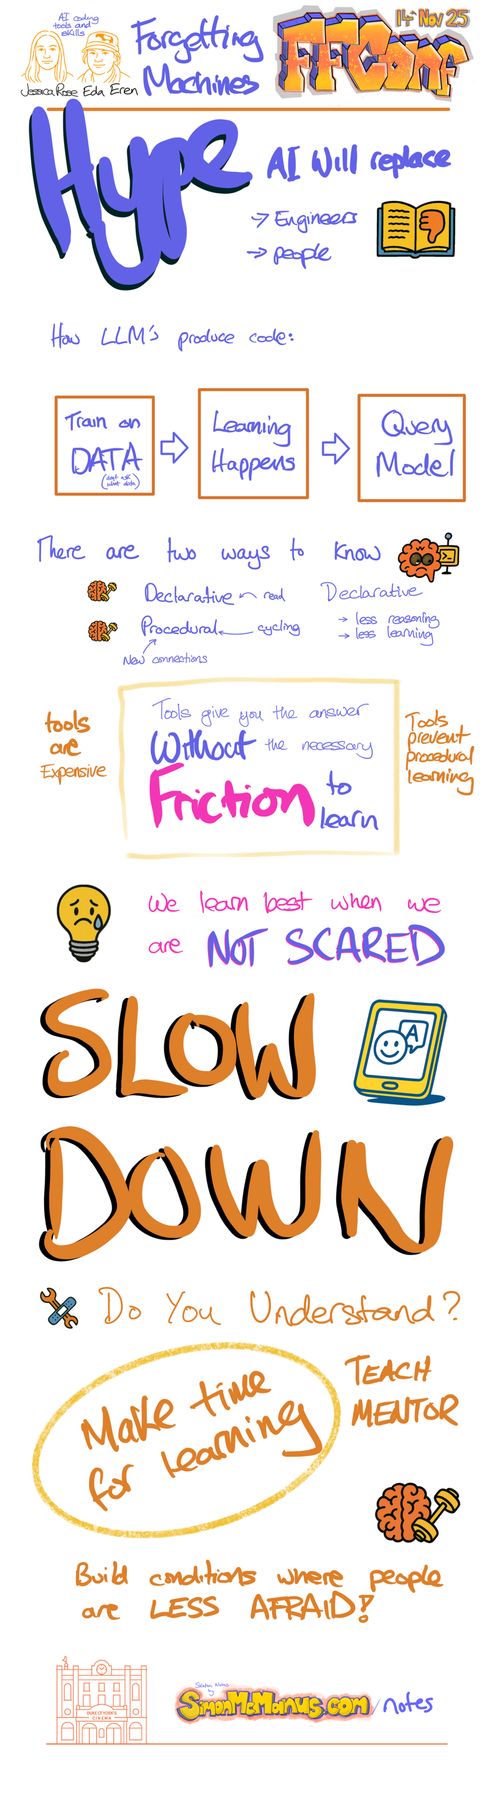 AI coding
tools and
skills
Jessica Rose Eda Eren
Forgetting
Machines
14th Nov 25
FFConf
Hype
AI Will replace
→ Engineers
→ people
How LLM's produce code:
Train on
DATA
(don't ask
what data)
Learning
Happens
Query
Model
There are two ways to know
Declarative ← read
Procedural ← cycling
New connections
Declarative
→ less reasoning
→ less learning
tools
are
Expensive
Tools give you the answer
Without the necessary
Friction to
learn
Tools
prevent
procedural
learning
We learn best when we
are NOT SCARED
SLOW
A
DOWN
Do You Understand?
Make time
for learning
TEACH
MENTOR
Build conditions where people
are LESS AFRAID!
DUKE OF YORK'S
CINEMA
Sketch Notes
by
SimonMcManus.com/notes